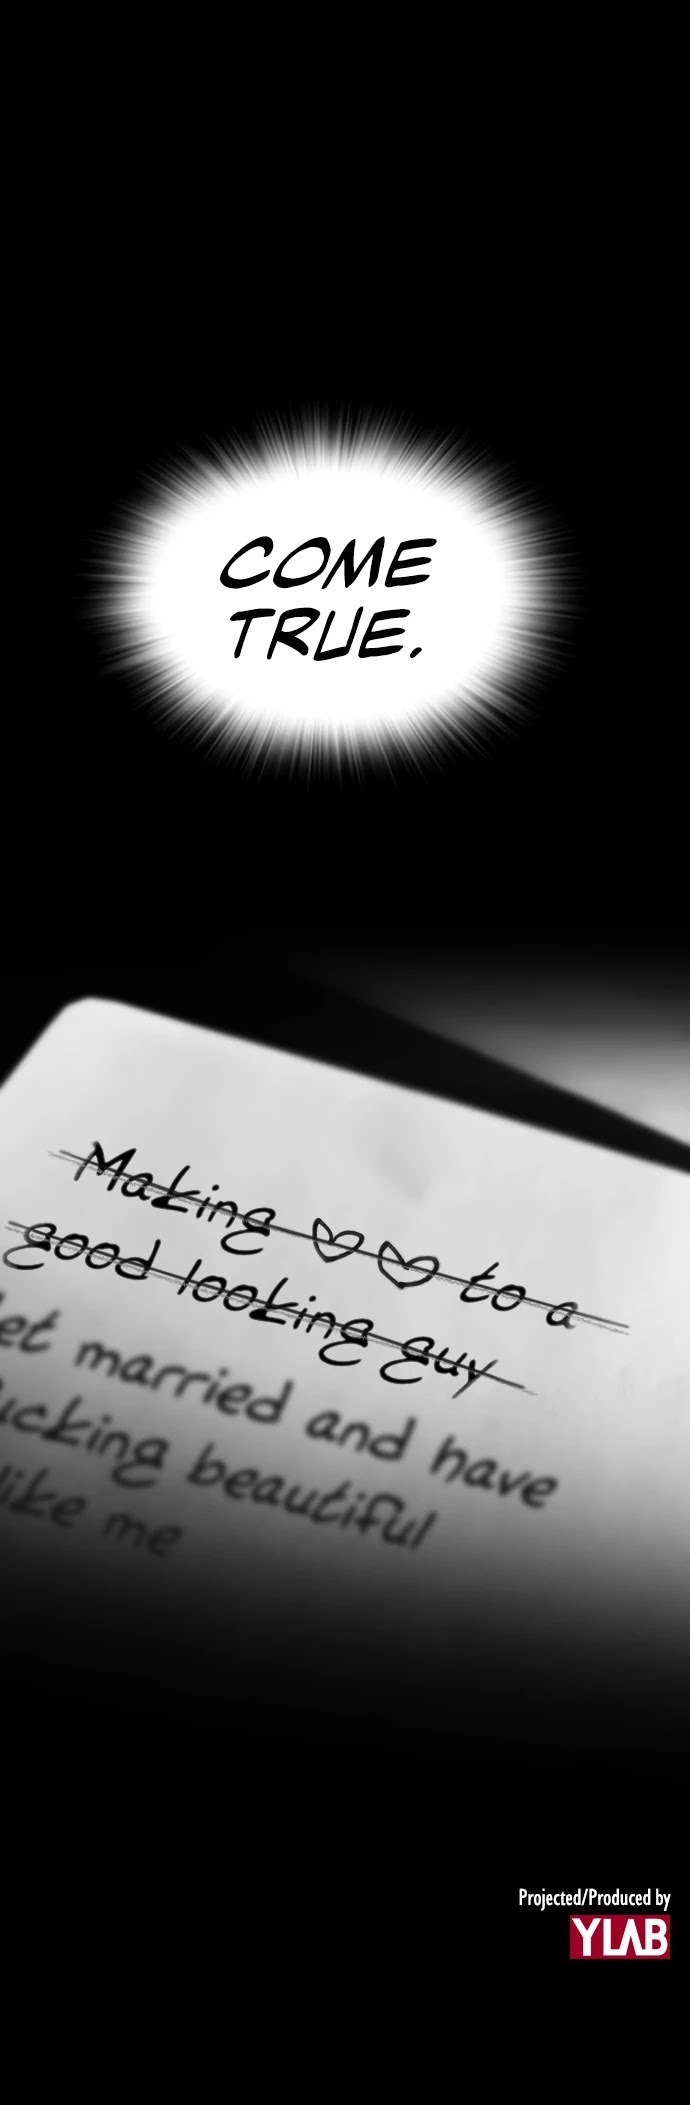 COME
TRUE.
Making ♡♡ to a
good looking guy
et married and have
ucking beautiful
like me
Projected/Produced by
YLAB